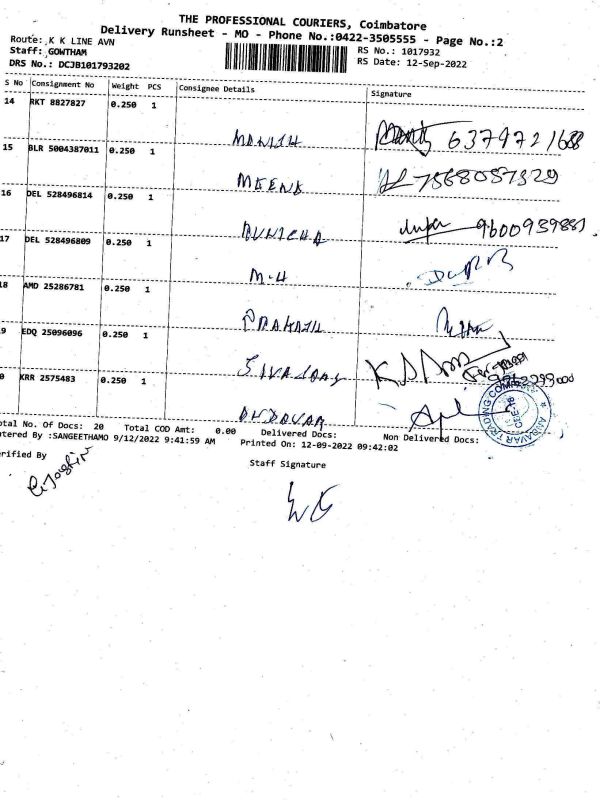 THE PROFESSIONAL COURIERS, Coimbatore
Delivery Runsheet - MO - Phone No.:0422-3505555 - Page No.:2
Route: K K LINE AVN
Staff: GOWTHAM
DRS No.: DCJB101793202
RS No.: 1017932
RS Date: 12-Sep-2022
S No Consignment No Weight PCS Consignee Details Signature
14 RKT 8827827 0.250 1
MANISH
15 BLR 5004387011 0.250 1
MEENA 7868087329
16 DEL 528496814 0.250 1
9600939881
17 DEL 528496809 0.250 1
M-H
18 AMD 25286781 0.250 1
PRAKASH
9 EDQ 25096096 0.250 1
0 KRR 2575483 0.250 1
ANDAVAR
ANDAVAR TRADING COMPANY
CBE-18
otal No. Of Docs: 20 Total COD Amt: 0.00 Delivered Docs: Non Delivered Docs:
ntered By :SANGEETHAMO 9/12/2022 9:41:59 AM Printed On: 12-09-2022 09:42:02
erified By
Staff Signature